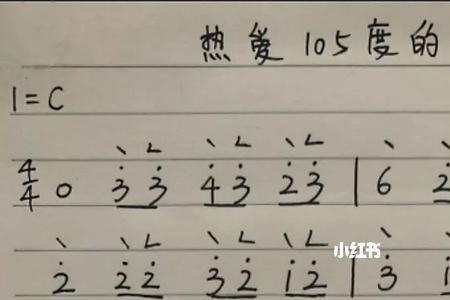 热爱105度的
1=C
4/4 0 3̇3̇ 4̇3̇ 2̇3̇ | 6 2̇
2̇ 2̇2̇ 3̇2̇ 1̇2̇ | 3̇ 1̇
小红书